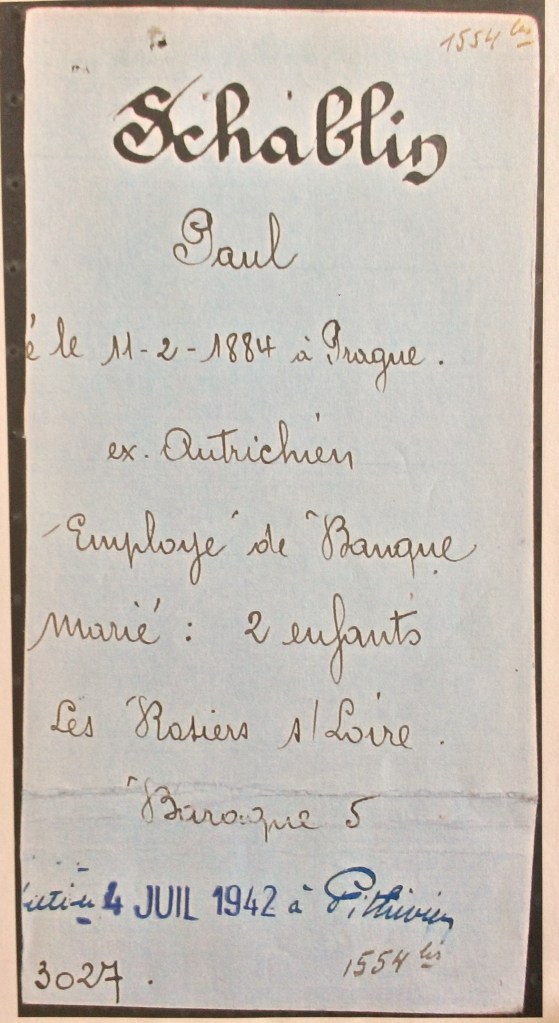 1554 bis
Schablin
Paul
é le 11-2-1884 à Prague.
ex. Autrichien
Employé de Banque
Marié : 2 enfants
Les Rosiers s/Loire.
Baraque 5
4 JUIL 1942 à Pithiviers
1554 bis
3027.